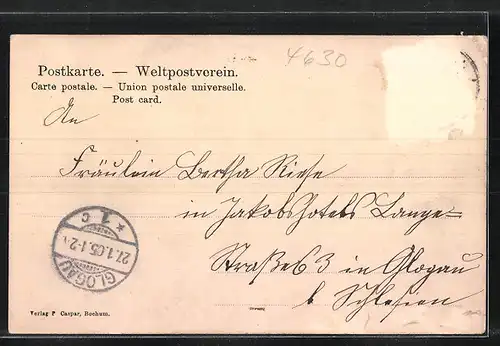 4630
Postkarte. — Weltpostverein.
Carte postale. — Union postale universelle.
Post card.
An
Fräulein Bertha Riese
in Jakobshotels Lange-
Straße 63 in Glogau
b Schlesien
* 1 c
27.1.05.1-2
GLOGAU
Verlag P Caspar, Bochum.